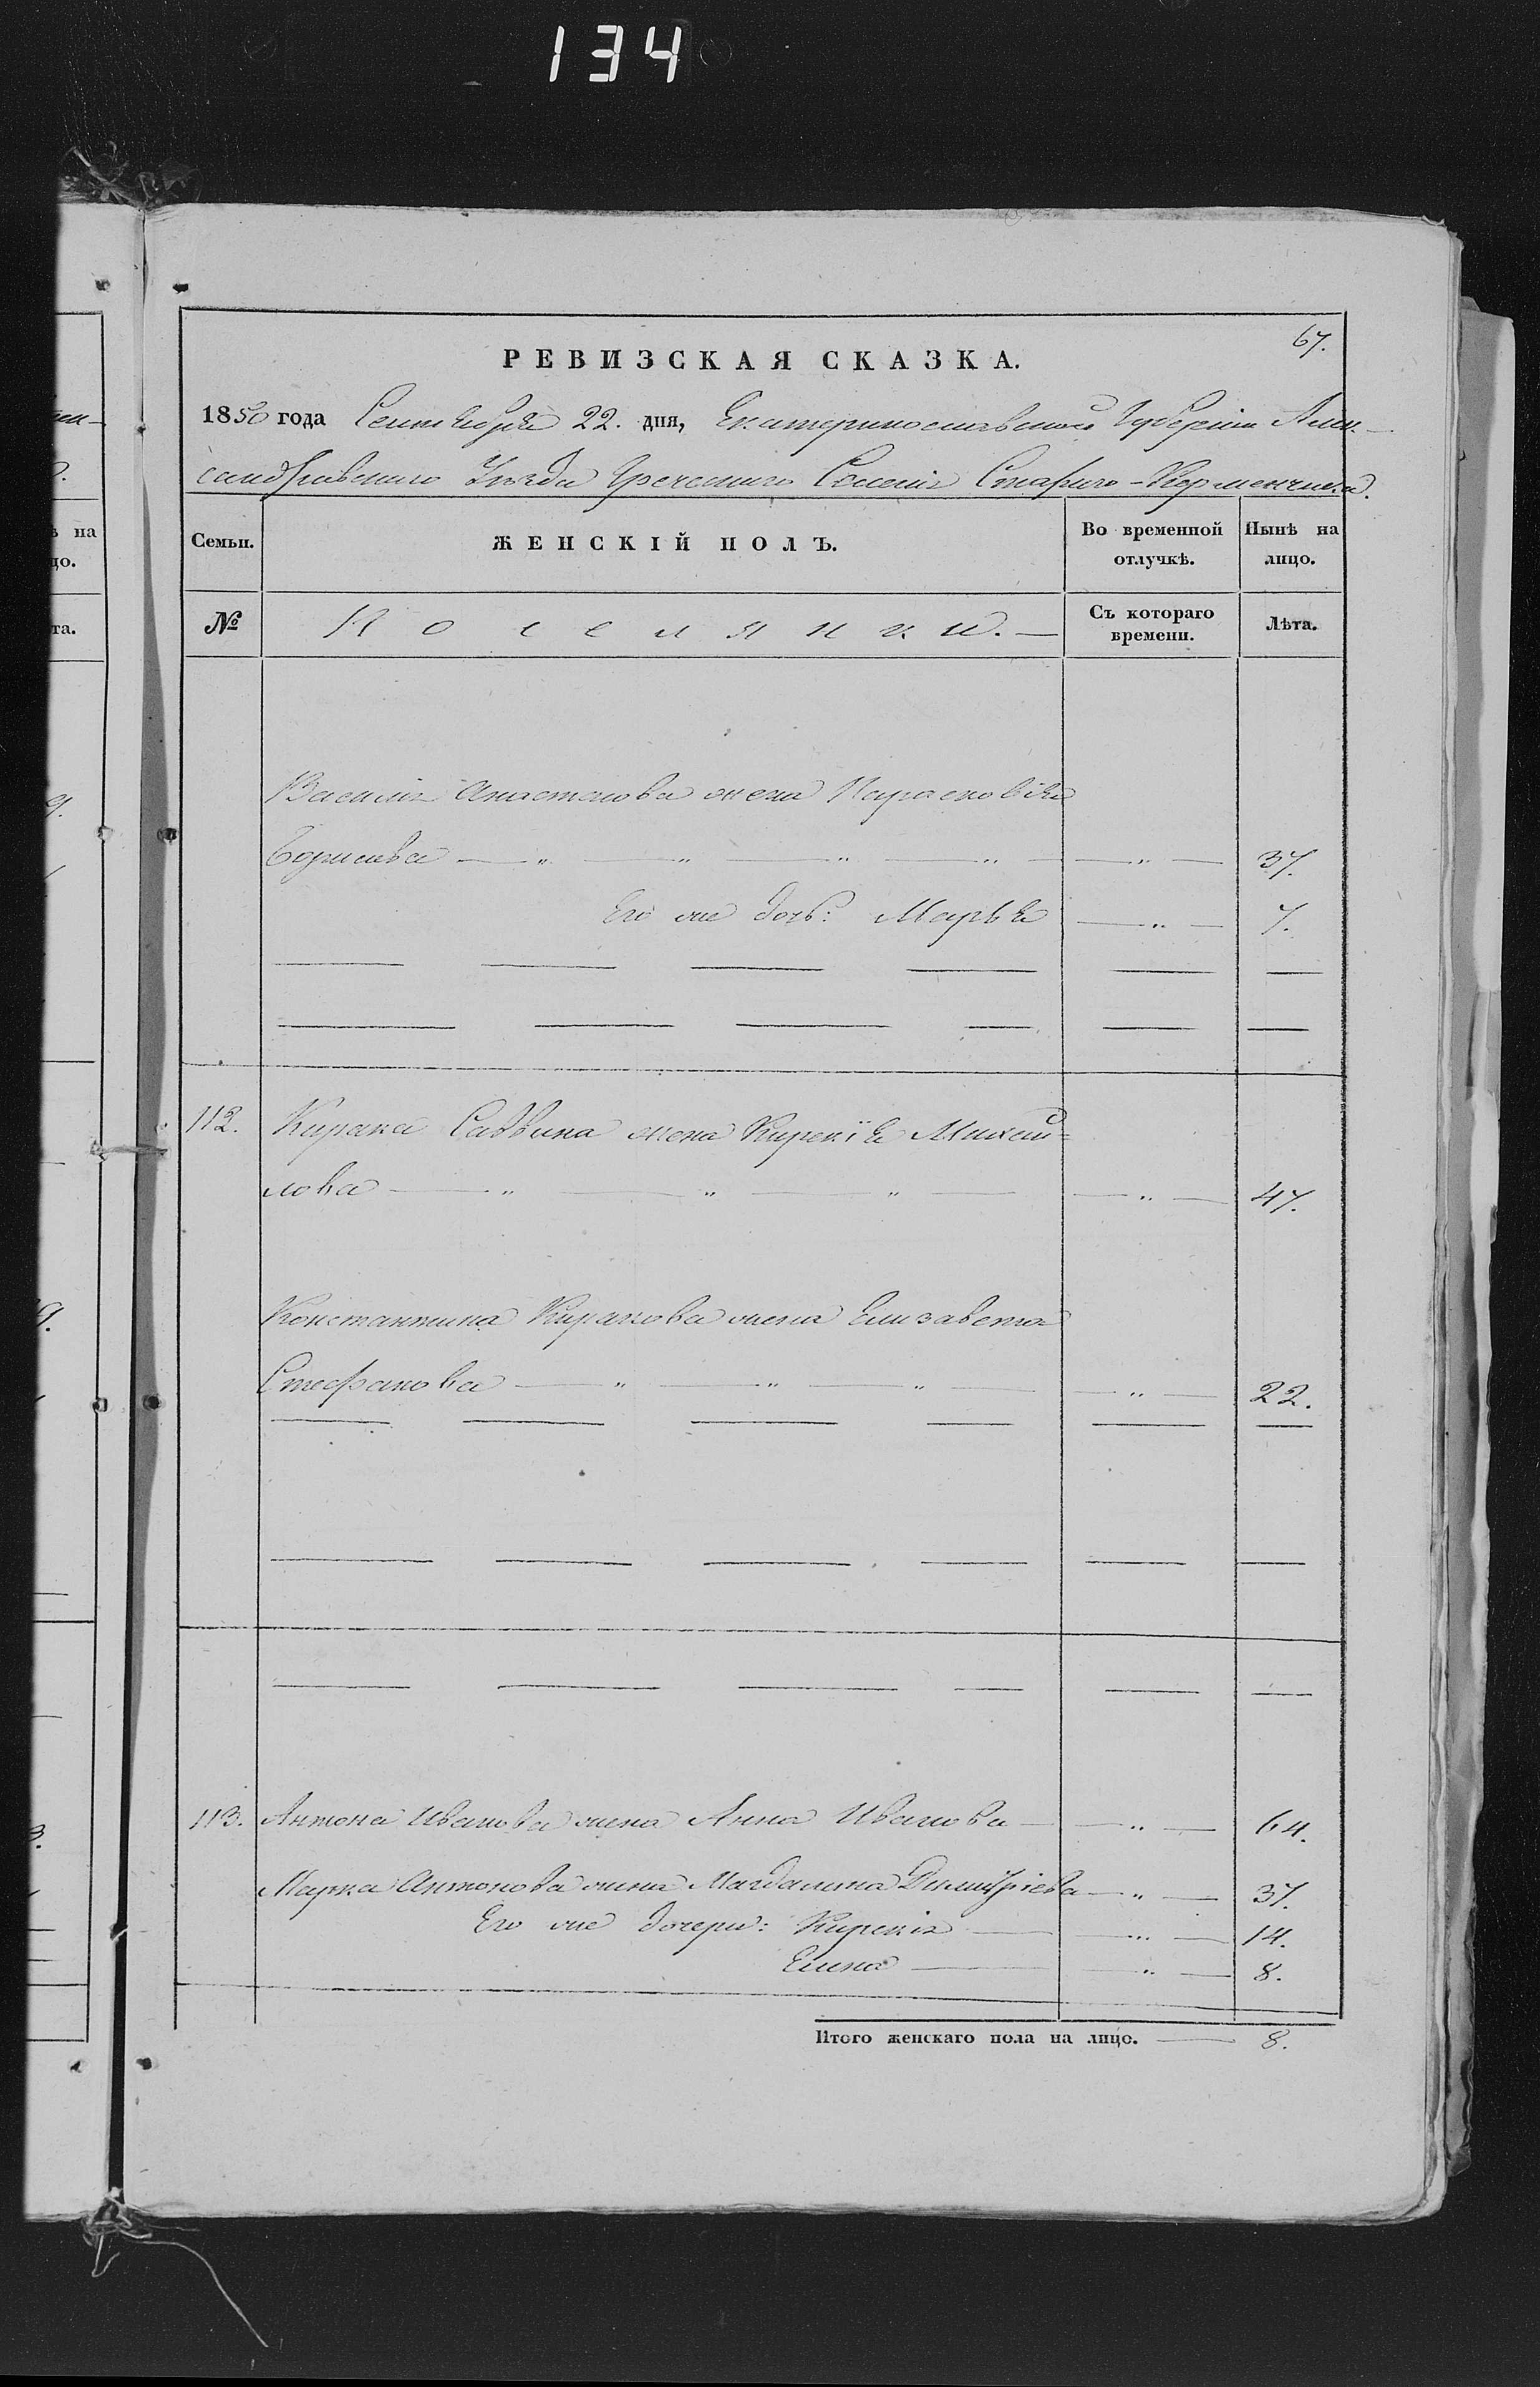 134
67.
РЕВИЗСКАЯ СКАЗКА.
1850 года Сентября 22. дня, Екатеринославской Губерніи Алек-
сандровскаго Уѣзда Греческаго Селенія Стараго-Керменчика.
Семьи.
ЖЕНСКІЙ ПОЛЪ.
Во временной отлучкѣ.
Нынѣ на лицо.
№
Поселянки.
Съ котораго времени.
Лѣта.
Василія Анастасова жена Парасковія
Борисова — " — " — " — " — " — 37.
Его же дочь: Марья — " — 7.
112. Кирака Саввина жена Кирекія Михай=
лова — " — " — " — " — 47.
Константина Киракова жена Елизавета
Стефанова — " — " — " — " — 22.
113. Антона Иванова жена Анна Иванова — " — 64.
Марка Антонова жена Магдалина Димитріева — " — 37.
Его же дочери: Кирекія — " — 14.
Елена — " — 8.
Итого женскаго пола на лицо. — 8.
на
цо.
та.